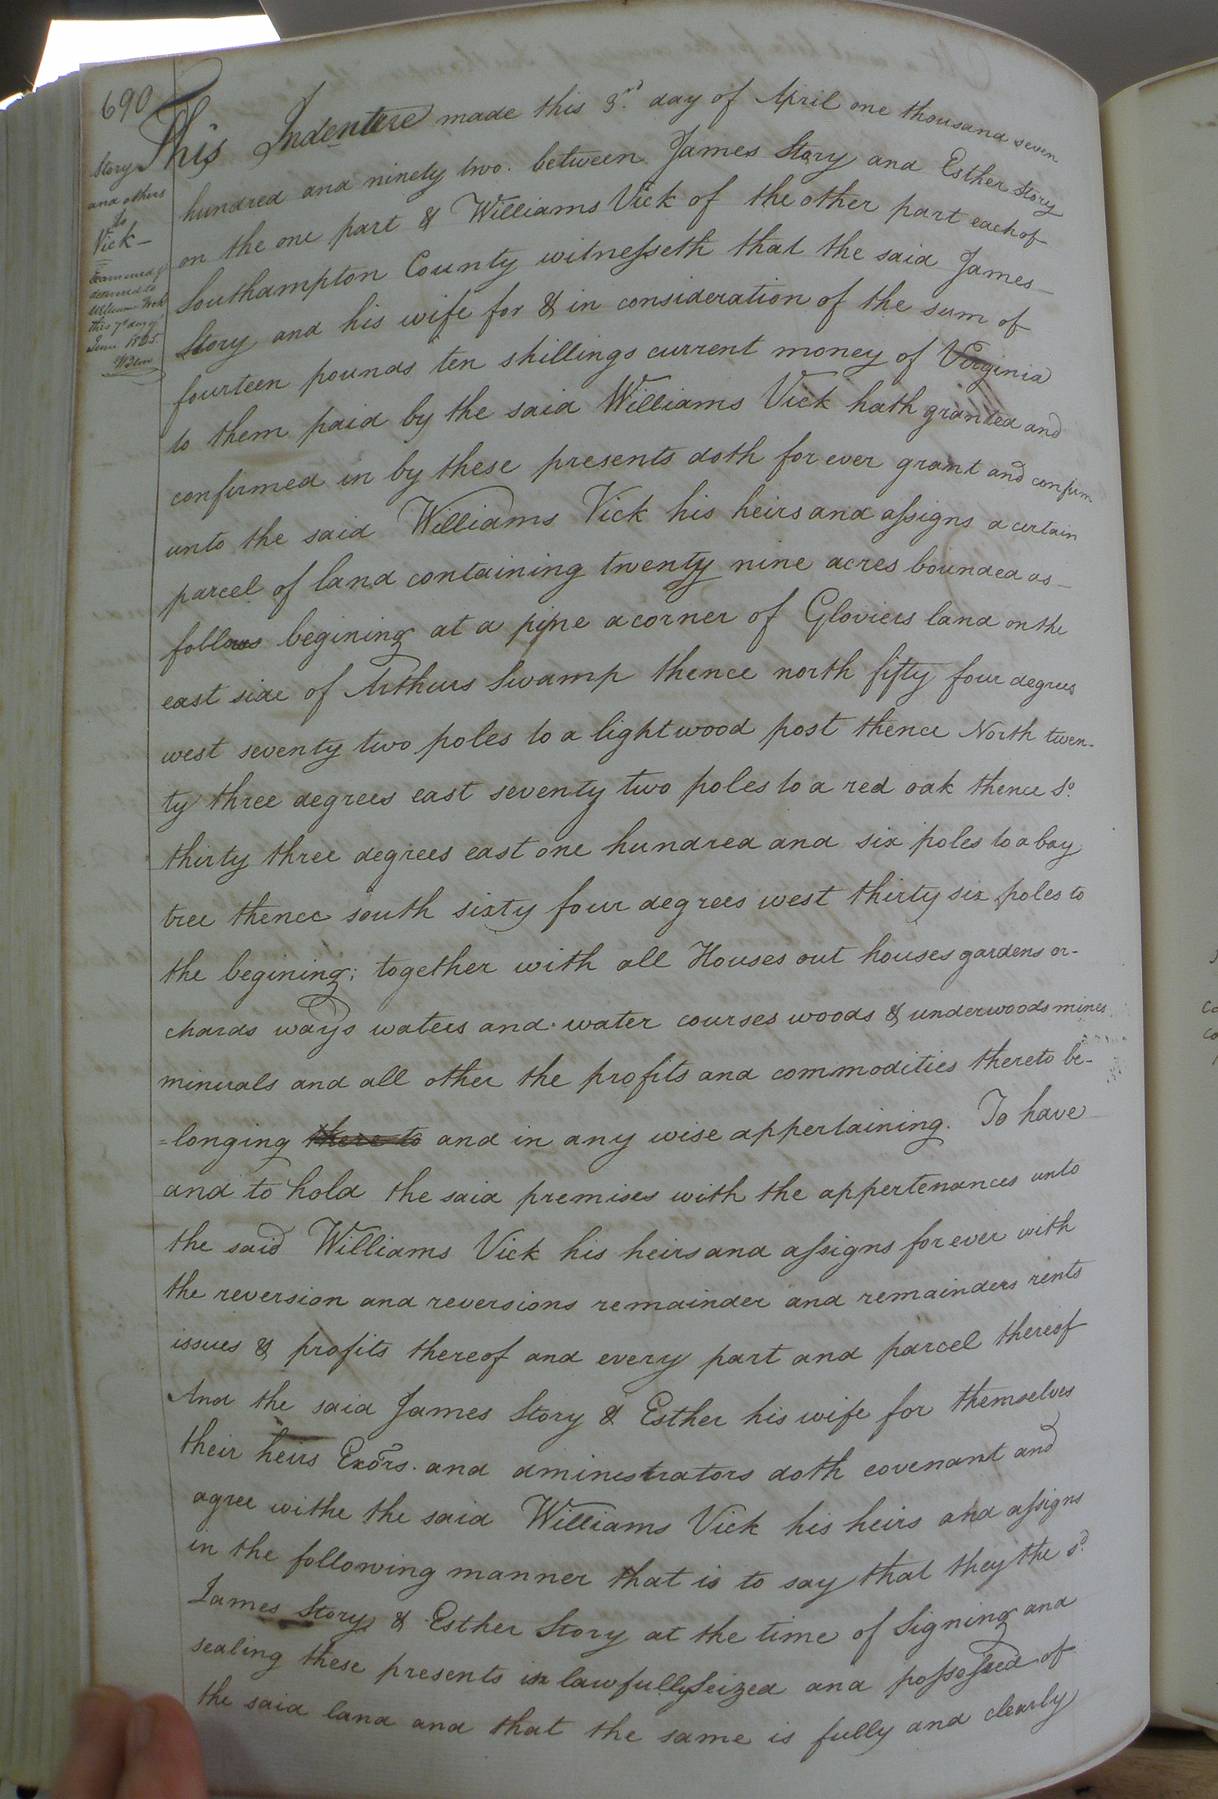 690
Story
and others
to
Vick
Examined &
delivered to
William Vick
this 7th day
June 1805
This Indenture made this 3rd day of April one thousand seven
hundred and ninety two. between James Story and Esther Story
on the one part & Williams Vick of the other part each of
Southampton County witnesseth that the said James
Story and his wife for & in consideration of the sum of
fourteen pounds ten shillings current money of Virginia
to them paid by the said Williams Vick hath granted and
confirmed in by these presents doth for ever grant and confirm
unto the said Williams Vick his heirs and assigns a certain
parcel of land containing twenty nine acres bounded as
follows begining at a pine a corner of Gloviers land on the
east side of Arthurs Swamp thence north fifty four degrees
west seventy two poles to a lightwood post thence North twen-
ty three degrees east seventy two poles to a red oak thence So.
thirty three degrees east one hundred and six poles to a bay
tree thence south sixty four degrees west thirty six poles to
the begining; together with all Houses out houses gardens or-
chards ways waters and water courses woods & underwoods mines
minerals and all other the profits and commodities thereto be-
=longing there to and in any wise appertaining. To have
and to hold the said premises with the appertenances unto
the said Williams Vick his heirs and assigns for ever with
the reversion and reversions remainder and remainders rents
issues & profits thereof and every part and parcel thereof
And the said James Story & Esther his wife for themselves
their heirs Exors. and aministrators doth covenant and
agree withe the said Williams Vick his heirs and assigns
in the following manner that is to say that they the sd.
James Story & Esther Story at the time of Signing and
sealing these presents is lawfully Seized and possessed of
the said land and that the same is fully and clearly